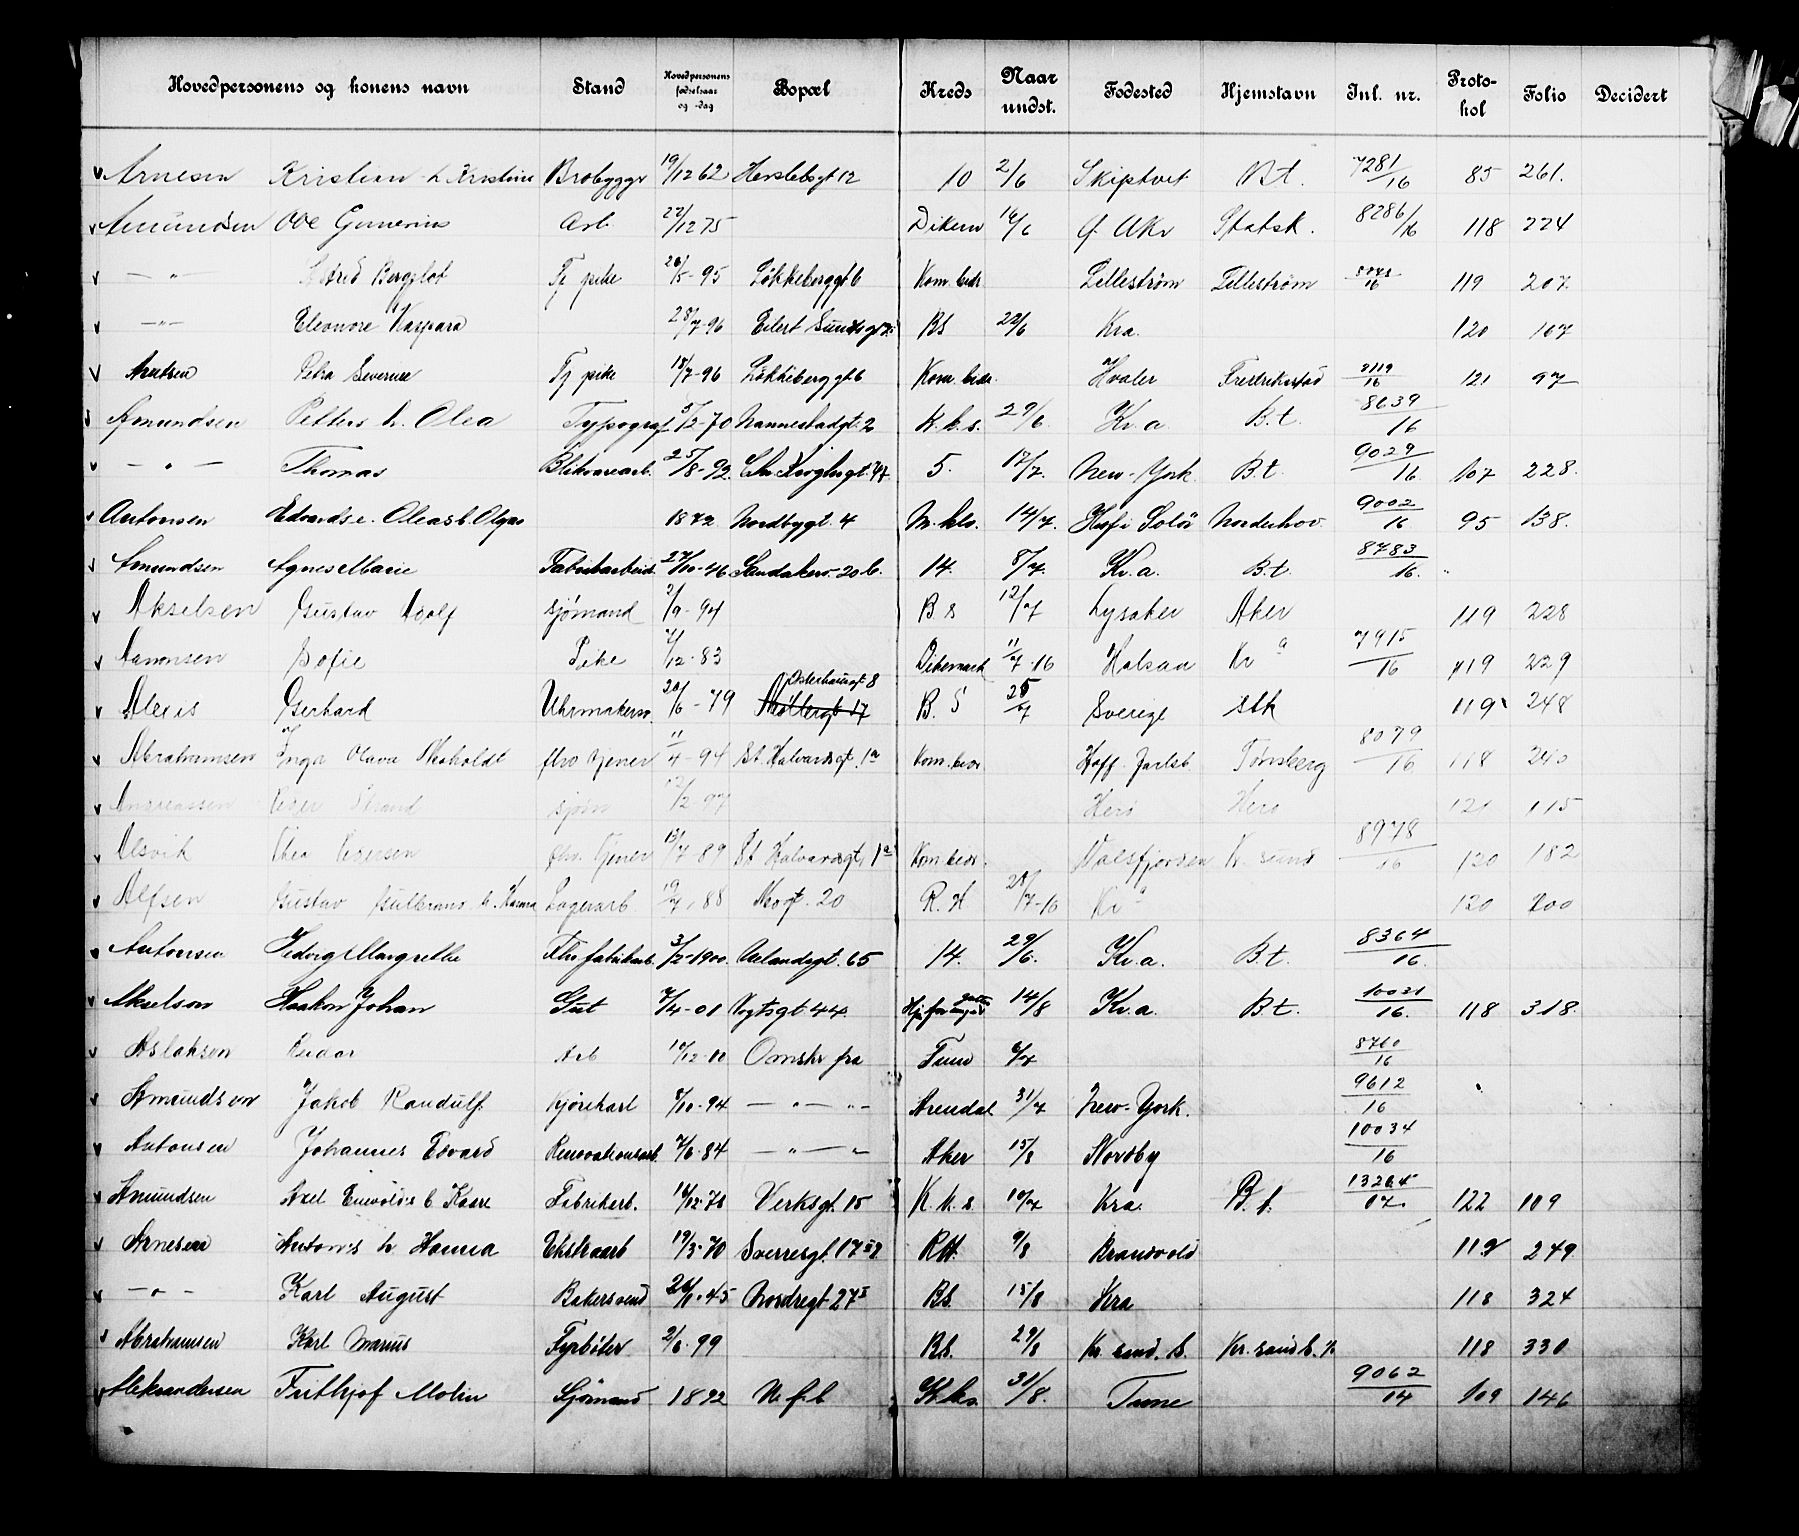 Hovedpersonens og konens navn Stand Hovedpersonens fødselsaar og -dag Bopæl Kreds Naar undst. Fødested Hjemstavn Inl. nr. Protokol Folio Decidert
Arnesen Kristian h. Kristine Brobygger 19/12 62 Herslebsgt 12 10 2/6 Skiptvet B.t. 7281/16 85 261.
Amundsen Ove Gunerius Arb 22/12 75 Dikem 16/6 Ø. Aker Statsk. 8286/16 118 224
— " — Astrid Bergliot Tj pike 26/5-95 Løkkeberggt 6 Kom. bedr. Lillestrøm Lillestrøm 119 207
— " — Eleonore Kaspara 28/7 96 Eilert Sundtsgt BS 22/6 Kra. 120 107
Arntsen Petra Severine Tj pike 18/7-96 Løkkeberggt 6 Kom. bedr. Hvaler Fredrikstad 121 97
Amundsen Petter h. Olea Typograf 5/2-70 Mannestadgt. 2 K.k.s. 29/6. Kr.a. B.t. 8639/16
— " — Thomas Blikvarearb. 25/8-92. Chr. Kroghsgt. 47 5. 17/7. New-York B.t. 9029/16 107 228.
Antonsen Edvards e. Oleas b. Olgas 1872 Nordbygt. 4 M.kls. 14/7. Hof i Solør Norderhov. 9002/16 95 138.
Amundsen Agnes Marie Fabrikarbeid. 27/10-46 Sandakerv. 20 b. 14. 8/7. Kr.a. B.t. 8783/16.
Akselsen Gustav Adolf sjømand 2/9-94 B s 12/7 Lysaker Aker 119 228
Aamonsen Sofie Pike 7/12-83 Dikemark 11/7-16 Halsaa Kr a 7915/16 119 229
Alexis Gerhard Uhrmakersv. 20/6-79 Møllergt 17 Osterhausgt 8 B. S 25/7 Sverige stk 119 248
Abrahamsen Inga Olava Skoholdt fhv tjener 11/4-94 St. Halvardsgt. 1a Kom. bedr. Hoff Jarlsb Tønsberg 8079/16 118 240
Andreassen Peder Strand sjøm 12/2-97 Herø Herø 121 115
Alsvik Thea Pedersen fhv. tjener 13/7-89 St Halvardsgt, 1a Kom. bedr. Valsfjorden Kr. sund 8978/16 120 182
Alfsen Gustav Gulbrand h. Hanna Lagerarb 19/7, 88 Skogt. 20 R. H 28/7-16 Kr a 120 200
Antonsen Hedvig Margrethe Fhv. fabrikarb. 3/2-1900. Aalandsgt. 65 14. 29/6. Kr.a. B.t. 8364/16.
Akselsen Haakon Johan Gut 7/4-01 Vogtsgt 44. 14/8 Kr.a. B.t. 10021/16. 118 318.
Aslaksen Einar Arb 10/12-00 Omskr fra Tune 6/7 8760/16
Amundsen Jakob Randulf. kjørekarl 8/10-94 — " — " — Arendal 31/7 New-York. 9612/16
Antonsen Johannes Edvard Renovationsarb. 7/6-84 — " — " Aker 15/8 Nordby 10034/16
Amundsen Axel Enevold's b Kaare Fabrikarb. 14/12-78 Verksgt. 15 K.k.s. 10/7 Kra. B.t. 13264/07 122 109
Arnesen Anton's h Hanna Ekstraarb 19/3-70 Sverresgt. 17 RH. 9/8 Brandvold 119 249.
— " — Karl August Bakersvend 26/10-45 Nordregt 27 I BS. 15/8 Kra 118 324
Abrahamsen Karl Marius Fyrbøter 2/6-99 BS. 29/8 Kr. sand. S. Kr. sand S. 118 330
Aleksandersen Frithjof Molin Sjømand 1892 U. f. b K.k.s. 31/8. Tune 9062/14 109 146